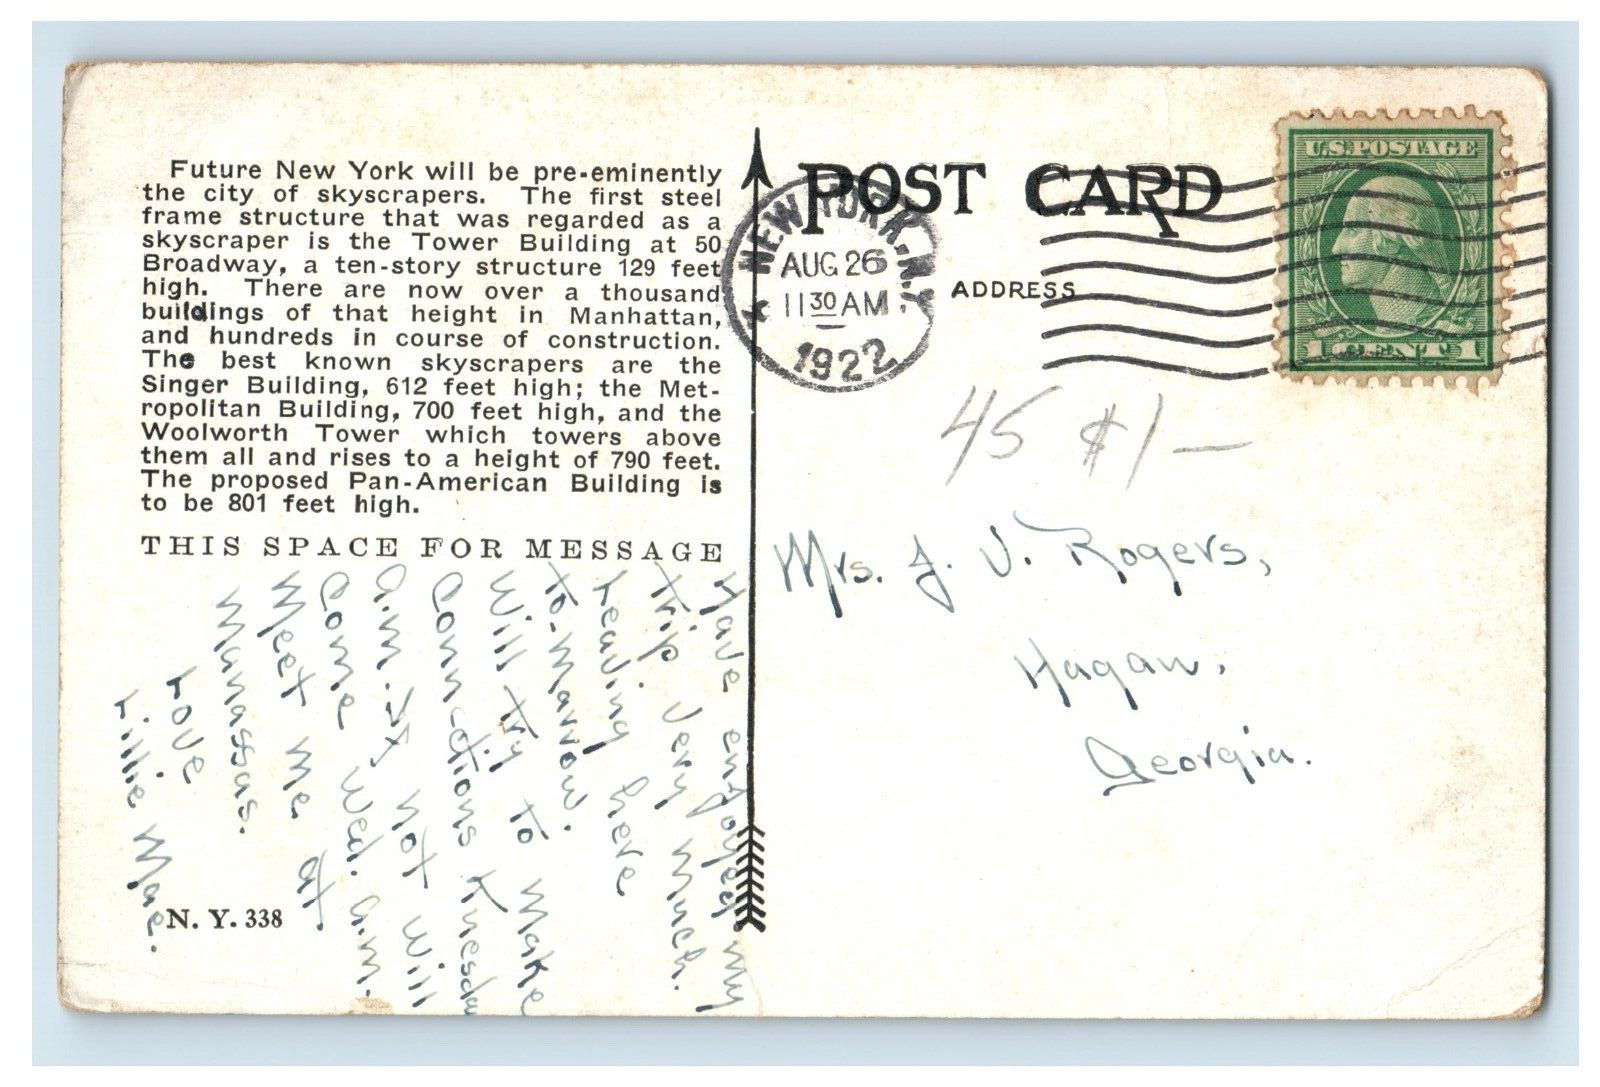 Future New York will be pre-eminently
the city of skyscrapers. The first steel
frame structure that was regarded as a
skyscraper is the Tower Building at 50
Broadway, a ten-story structure 129 feet
high. There are now over a thousand
buildings of that height in Manhattan,
and hundreds in course of construction.
The best known skyscrapers are the
Singer Building, 612 feet high; the Met-
ropolitan Building, 700 feet high, and the
Woolworth Tower which towers above
them all and rises to a height of 790 feet.
The proposed Pan-American Building is
to be 801 feet high.
THIS SPACE FOR MESSAGE
Have enjoyed my
trip very much.
Leaving here
to-morrow.
Will try to make
Connections Tuesday
a.m. If not will
Come Wed. a.m.
Meet me at
Manassas.
Love
Lillie Mae.
N. Y. 338
POST CARD
ADDRESS
NEW YORK, N.Y.
AUG 26
11 30 AM
1922
U.S. POSTAGE
1 CENT 1
45 $1-
Mrs. J. V. Rogers,
Hagan,
Georgia.